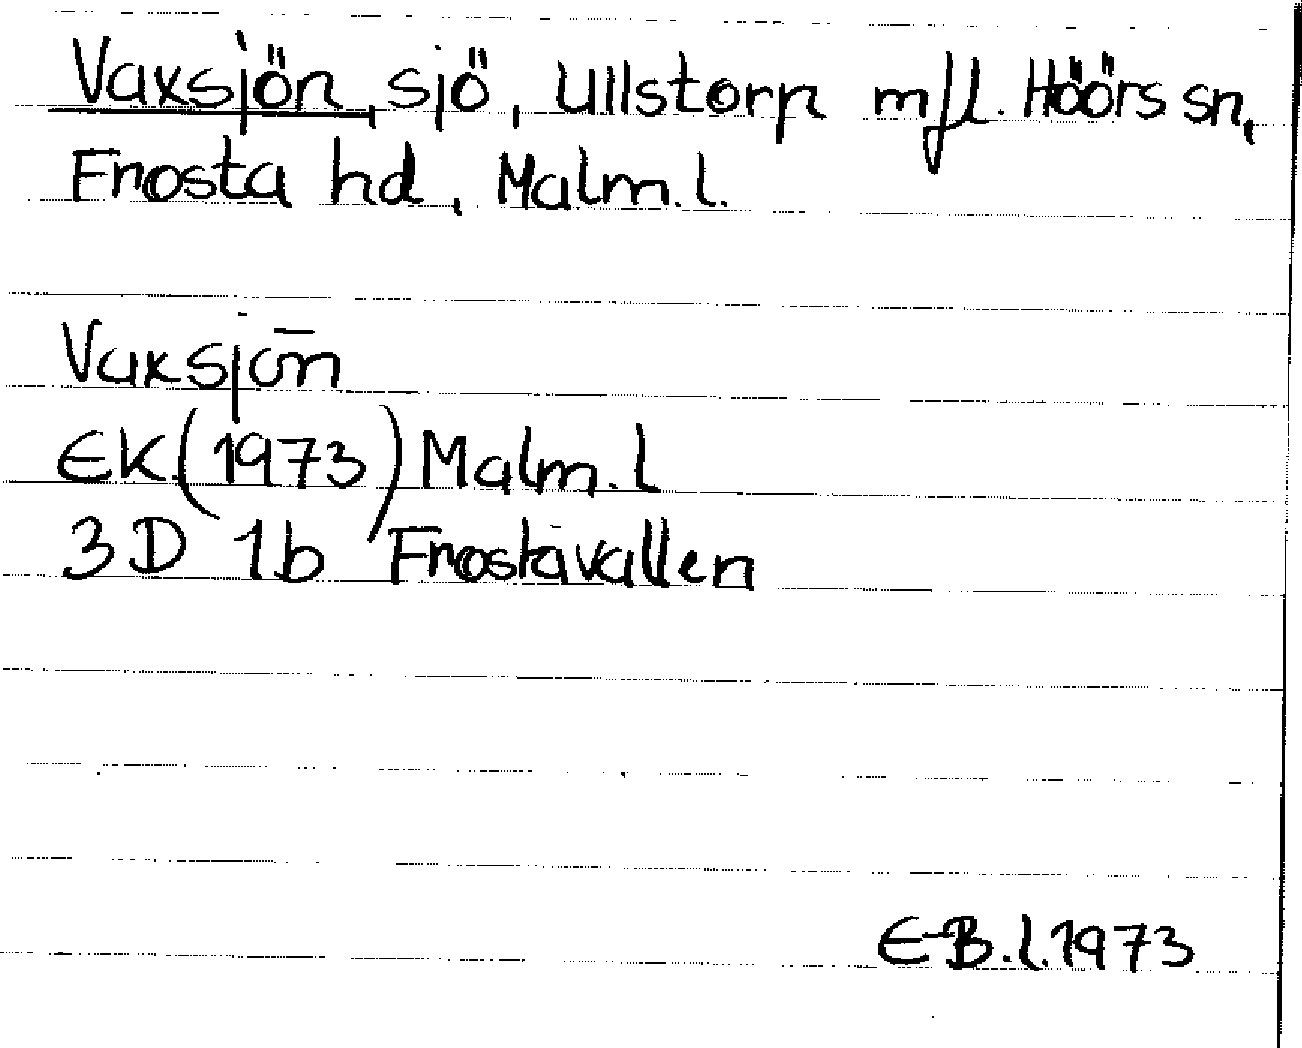 Vaxsjön, sjö, Ullstorp mfl. Höörs sn,
Frosta hd, Malm.l.
Vaxsjön
EK(1973) Malm.l
3D 1b Frostavallen
E-B.l.1973